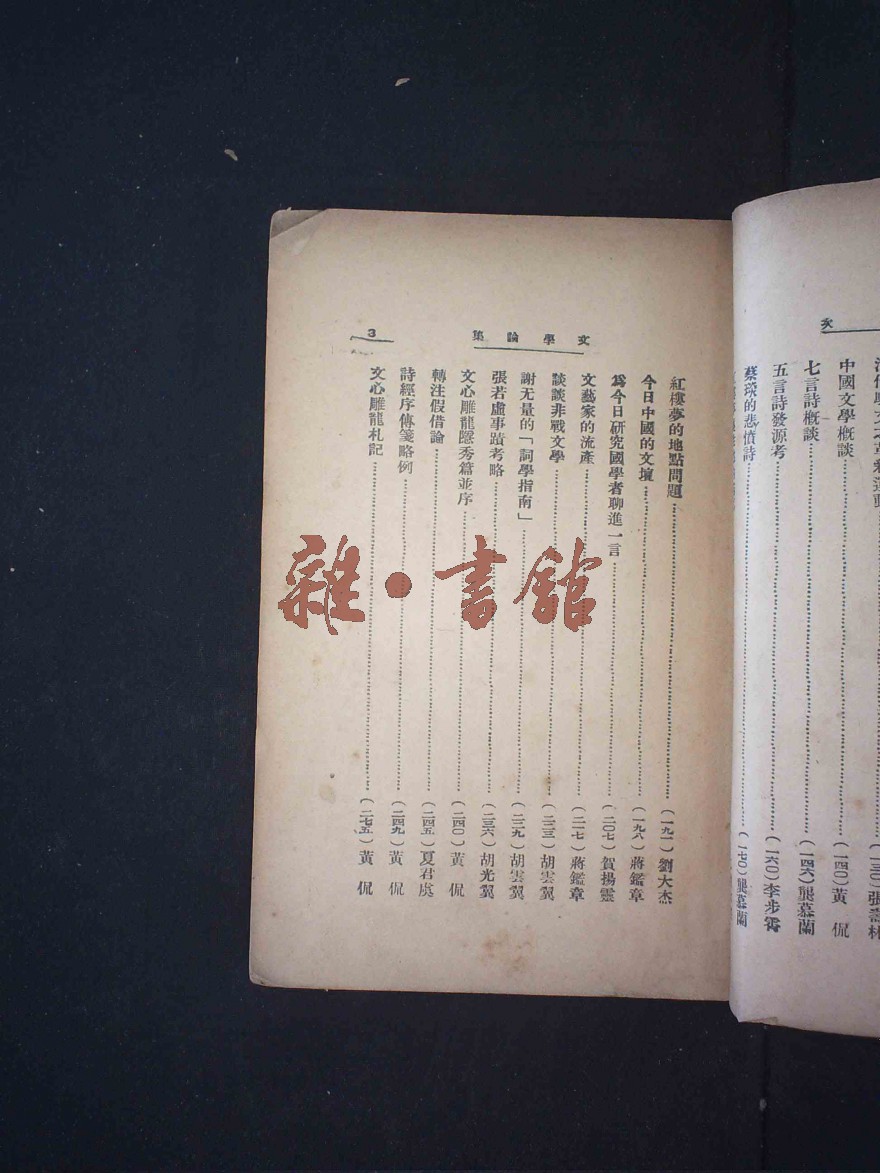 中國文學概談……(一四〇)黃 侃
七言詩概談……(一四六)龔慕蘭
五言詩發源考……(一六〇)李步霄
蔡琰的悲憤詩……(一七〇)龔慕蘭
文學論集
3
紅樓夢的地點問題……(一九一)劉大杰
今日中國的文壇……(一九八)蔣鑑章
爲今日研究國學者聊進一言……(二〇七)賀揚靈
文藝家的流產……(二一七)蔣鑑章
談談非戰文學……(二二三)胡雲翼
謝无量的「詞學指南」……(二二九)胡雲翼
張若虛事蹟考略……(二三六)胡光翼
文心雕龍隱秀篇並序……(二四〇)黃 侃
轉注假借論……(二四五)夏君虞
詩經序傳箋略例……(二四九)黃 侃
文心雕龍札記……(二七五)黃 侃
雜·書館